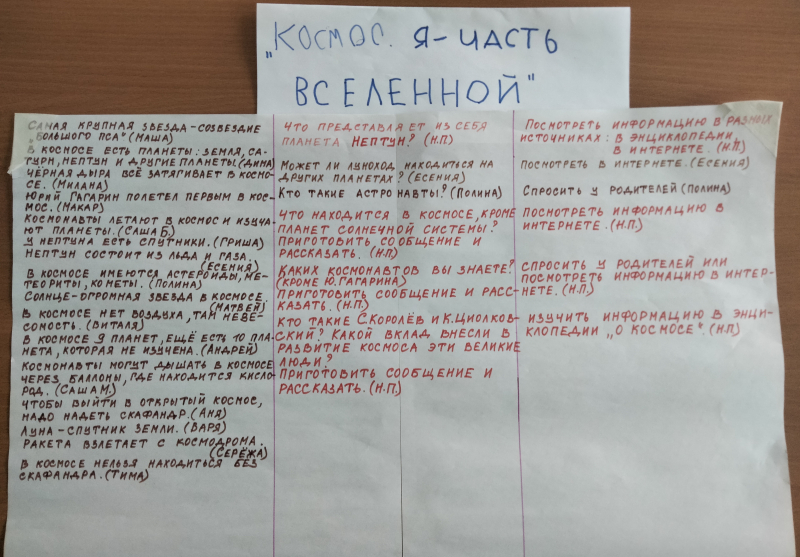 "КОСМОС. Я-ЧАСТЬ
ВСЕЛЕННОЙ"
САМАЯ КРУПНАЯ ЗВЕЗДА-СОЗВЕЗДИЕ
"БОЛЬШОГО ПСА" (МАША)
В КОСМОСЕ ЕСТЬ ПЛАНЕТЫ: ЗЕМЛЯ, СА-
ТУРН, НЕПТУН И ДРУГИЕ ПЛАНЕТЫ. (ДИМА)
ЧЁРНАЯ ДЫРА ВСЁ ЗАТЯГИВАЕТ В КОСМО-
СЕ. (МИЛАНА)
ЮРИЙ ГАГАРИН ПОЛЕТЕЛ ПЕРВЫМ В КОС-
МОС. (МАКАР)
КОСМОНАВТЫ ЛЕТАЮТ В КОСМОС И ИЗУЧА-
ЮТ ПЛАНЕТЫ. (САША Б.)
У НЕПТУНА ЕСТЬ СПУТНИКИ. (ГРИША)
НЕПТУН СОСТОИТ ИЗ ЛЬДА И ГАЗА.
(ЕСЕНИЯ)
В КОСМОСЕ ИМЕЮТСЯ АСТЕРОИДЫ, МЕ-
ТЕОРИТЫ, КОМЕТЫ. (ПОЛИНА)
СОЛНЦЕ-ОГРОМНАЯ ЗВЕЗДА В КОСМОСЕ.
(МАТВЕЙ)
В КОСМОСЕ НЕТ ВОЗДУХА, ТАМ НЕВЕ-
СОМОСТЬ. (ВИТАЛЯ)
В КОСМОСЕ 9 ПЛАНЕТ, ЕЩЁ ЕСТЬ 10 ПЛА-
НЕТА, КОТОРАЯ НЕ ИЗУЧЕНА. (АНДРЕЙ)
КОСМОНАВТЫ МОГУТ ДЫШАТЬ В КОСМОСЕ
ЧЕРЕЗ БАЛЛОНЫ, ГДЕ НАХОДИТСЯ КИСЛО-
РОД. (САША М.)
ЧТОБЫ ВЫЙТИ В ОТКРЫТЫЙ КОСМОС,
НАДО НАДЕТЬ СКАФАНДР. (АНЯ)
ЛУНА-СПУТНИК ЗЕМЛИ. (ВАРЯ)
РАКЕТА ВЗЛЕТАЕТ С КОСМОДРОМА.
(СЕРЁЖА)
В КОСМОСЕ НЕЛЬЗЯ НАХОДИТЬСЯ БЕЗ
СКАФАНДРА. (ТИМА)
ЧТО ПРЕДСТАВЛЯЕТ ИЗ СЕБЯ
ПЛАНЕТА НЕПТУН? (Н.П)
МОЖЕТ ЛИ ЛУНОХОД НАХОДИТЬСЯ НА
ДРУГИХ ПЛАНЕТАХ? (ЕСЕНИЯ)
КТО ТАКИЕ АСТРОНАВТЫ? (ПОЛИНА)
ЧТО НАХОДИТСЯ В КОСМОСЕ, КРОМЕ
ПЛАНЕТ СОЛНЕЧНОЙ СИСТЕМЫ?
ПРИГОТОВИТЬ СООБЩЕНИЕ И
РАССКАЗАТЬ. (Н.П)
КАКИХ КОСМОНАВТОВ ВЫ ЗНАЕТЕ?
(КРОМЕ Ю.ГАГАРИНА)
ПРИГОТОВИТЬ СООБЩЕНИЕ И РАСС-
КАЗАТЬ. (Н.П.)
КТО ТАКИЕ С.КОРОЛЁВ И К.ЦИОЛКОВ-
СКИЙ? КАКОЙ ВКЛАД ВНЕСЛИ В
РАЗВИТИЕ КОСМОСА ЭТИ ВЕЛИКИЕ
ЛЮДИ?
ПРИГОТОВИТЬ СООБЩЕНИЕ И
РАССКАЗАТЬ. (Н.П.)
ПОСМОТРЕТЬ ИНФОРМАЦИЮ В РАЗНЫХ
ИСТОЧНИКАХ: В ЭНЦИКЛОПЕДИИ,
В ИНТЕРНЕТЕ. (Н.П)
ПОСМОТРЕТЬ В ИНТЕРНЕТЕ. (ЕСЕНИЯ)
СПРОСИТЬ У РОДИТЕЛЕЙ (ПОЛИНА)
ПОСМОТРЕТЬ ИНФОРМАЦИЮ В
ИНТЕРНЕТЕ. (Н.П.)
СПРОСИТЬ У РОДИТЕЛЕЙ ИЛИ
ПОСМОТРЕТЬ ИНФОРМАЦИЮ В ИНТЕР-
НЕТЕ. (Н.П.)
ИЗУЧИТЬ ИНФОРМАЦИЮ В ЭНЦИ-
КЛОПЕДИИ „О КОСМОСЕ". (Н.П)